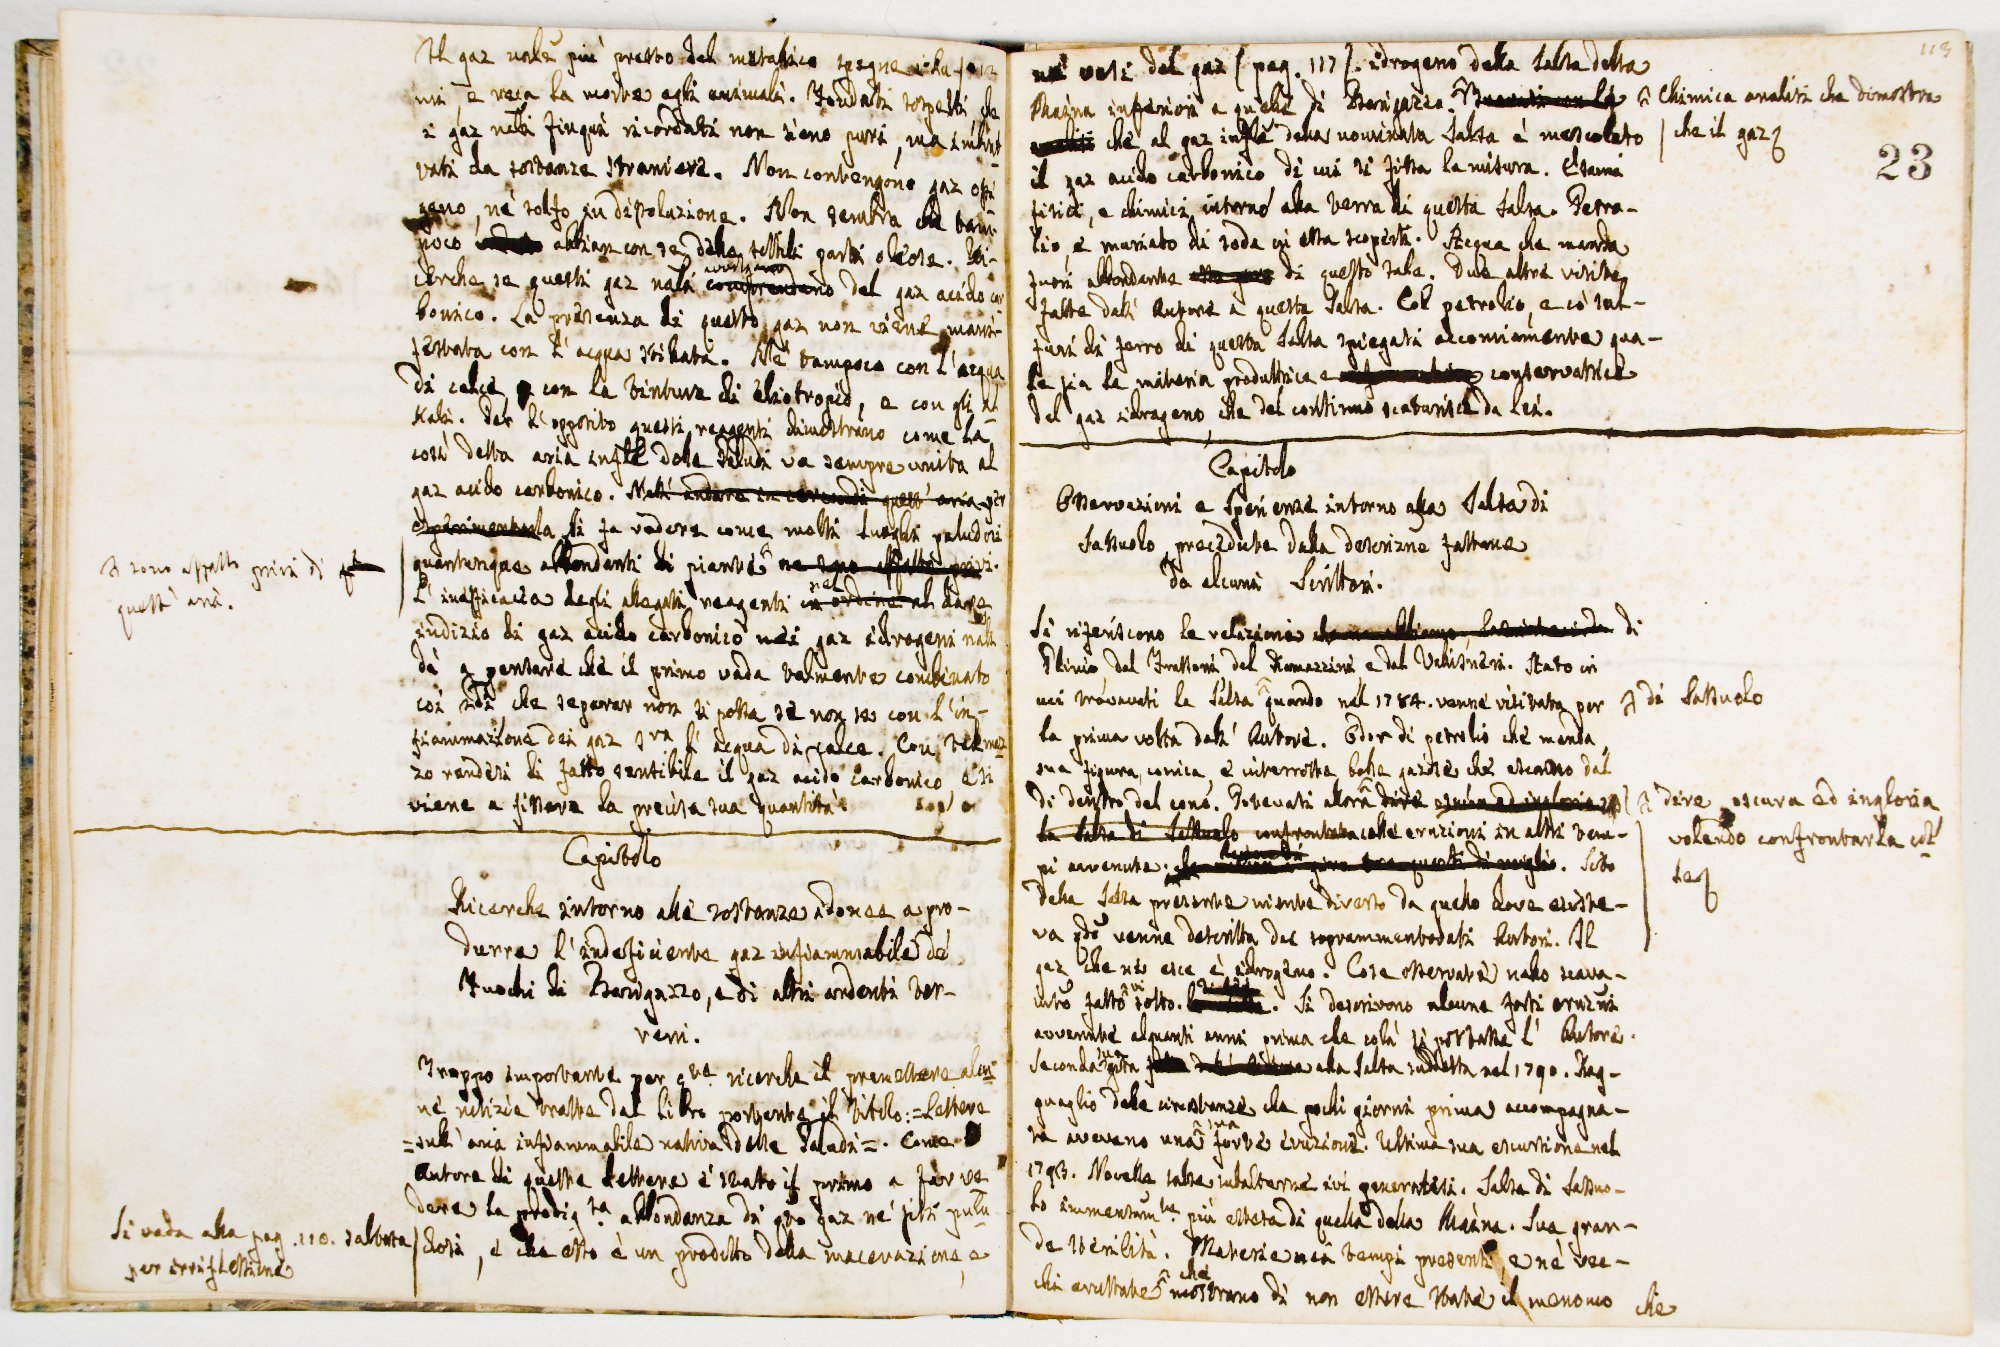 Il gaz nolu più presto del metallico spegne i lu-
mi, e reca la morte agli animali. Fondati sospetti, che
i gaz nati finquì ricordati non sieno puri, ma imbrat-
tati da sostanze straniere. Non contengono gaz ossi
geno, nè solfo in dissoluzione. Non sembra che tam-
poco abbian con se delle sottili parti oleose. Ri-
cerche se questi gaz nati comprendano del gaz acido car
bonico. La presenza di questo gaz non viene mani-
festata con l'acqua stillata. Nè tampoco con l'acqua
di calce, e con la tintura di eliotropio, e con gli al
kali. Per l'opposito questi reagenti dimostrano come la
così detta aria infle delle Paludi va sempre unita al
gaz acido carbonico. Nell' andare in cercandi quest' aria per
esperimentarla si fa vedere come molti luoghi paludosi
quantunque abbondanti di piante ne sono affatto privi.
si sono affatto privi di
quest' aria.
L'inefficacia degli allegati reagenti in ordine al dare
nel
indizio di gaz acido carbonico nei gaz idrogeni nati
dà a pensare che il primo vada talmente combinato
coi 2di che separar non si possa se non se con l'in-
fiammazione dei gaz sra l'acqua di calce. Con tal mez
zo rendesi di fatto sensibile il gaz acido carbonico e si
viene a fissare la precisa sua quantità
Capitolo
Ricerche intorno alle sostanze idonee a pro-
durre l'indeficiente gaz infiammabile de'
Fuochi di Barigazzo, e di altri ardenti ter-
reni.
Troppo importante per qte ricerche il premettere alcu
ne notizie tratte dal Libro portante il titolo: = Lettere
= sull' aria infiammabile nativa delle Paludi =. Come
Autore di queste Lettere è stato il primo a far ve
dere la prodigta abbondanza di qto gaz ne' siti palu
dosi, e che esso è un prodotto della macerazione, e
Si veda alla pag. 110. saltata
per irriflessione
113
23
nè vesi del gaz ( pag. 117 ). idrogeno della Salsa della
Maina inferiori a quelle di Barigazzo.
Chimica analisi che dimostra
che il gaz
che al gaz infle della nominata Salsa è mescolato
il gaz acido carbonico di cui si fissa la misura. Esami
fisici, e chimici intorno alla terra di questa Salsa. Petro-
lio, e muriato di soda in essa scoperti. Acqua che manda
fuori abbondante di questo sale. Due altre visite
fatte dall' Autore a questa Salsa. Col petrolio, e co' sul-
furi di ferro di questa Salsa spiegasi acconciamente qua-
le sia la materia produttrice e conservatrice
del gaz idrogeno che del continuo scaturisce da lei.
Capitolo
Osservazioni e Sperienze intorno alla Salsa di
Sassuolo, precedute dalla descrizne fattane
da alcuni Scrittori.
Si riferiscono le relazioni di
Plinio, del Frassoni, del Ramazzini, e del Valisneri. Stato in
cui trovavasi la Salsa quando nel 1784. venne visitata per
di Sassuolo
la prima volta dall' Autore. Odor di petrolio che manda,
sua figura conica, e interrotta, bolle gazose che escono dal
di dentro del cono. Potevasi allora dire oscura ed ingloria
dire oscura ed ingloria
volendo confrontarla col
le
la Salsa di Sassuolo confrontata colle eruzioni in altri tem-
pi avvenute. Sito
della Salsa presente niente diverso da quello dove esiste-
va qdo venne descritta dai soprammentovati Autori. Il
gaz che ne esce è idrogeno. Cose osservate nello scava-
mto fatto ivi sotto. Si descrivono alcune forti eruzni
avvenute alquanti anni prima che colà si portasse l'Autore.
Seconda sua gita alla Salsa suddetta nel 1790. Rag-
guaglio delle circostanze che pochi giorni prima accompagna-
to avevano una sua forte eruzione. Ultima sua escursione nel
1793. Novelle salse subalterne ivi generatesi. Salsa di Sassuo-
lo immensamte più estesa di quella della Maina. Sua gran-
de sterilità. Materie nei tempi presenti, e ne' vec-
chi eruttate che mostrano di non essere state il menomo che